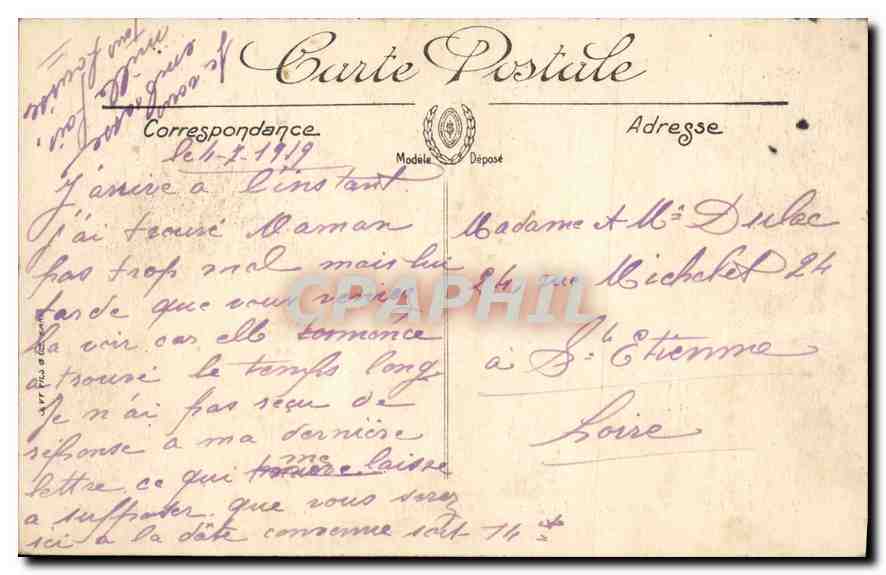 Je vous
embrasse
mille fois.
tous Louise
Carte Postale
Correspondance
Adresse
Modèle Déposé
le 4-7-1919
J'arrive a l'instant.
j'ai trouvé Maman
pas trop mal mais lui
tarde que vous veniez
la voir car elle commence
a trouvé le temps long
Je n'ai pas reçu de
réponse a ma dernière
lettre ce qui me laisse
a supposer que vous serez
ici a la dâte convenue soit 14 ct
Madame et Mr Dulac
24 rue Michelet 24
à St Etienne
Loire
CPAPHIL